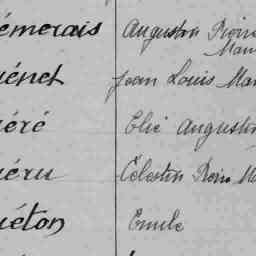 émerais Augustin Pierre
Mari
énet Jean Louis Mar
éré Elie Augustin
éru Célestin Pierre M
uéton Emile